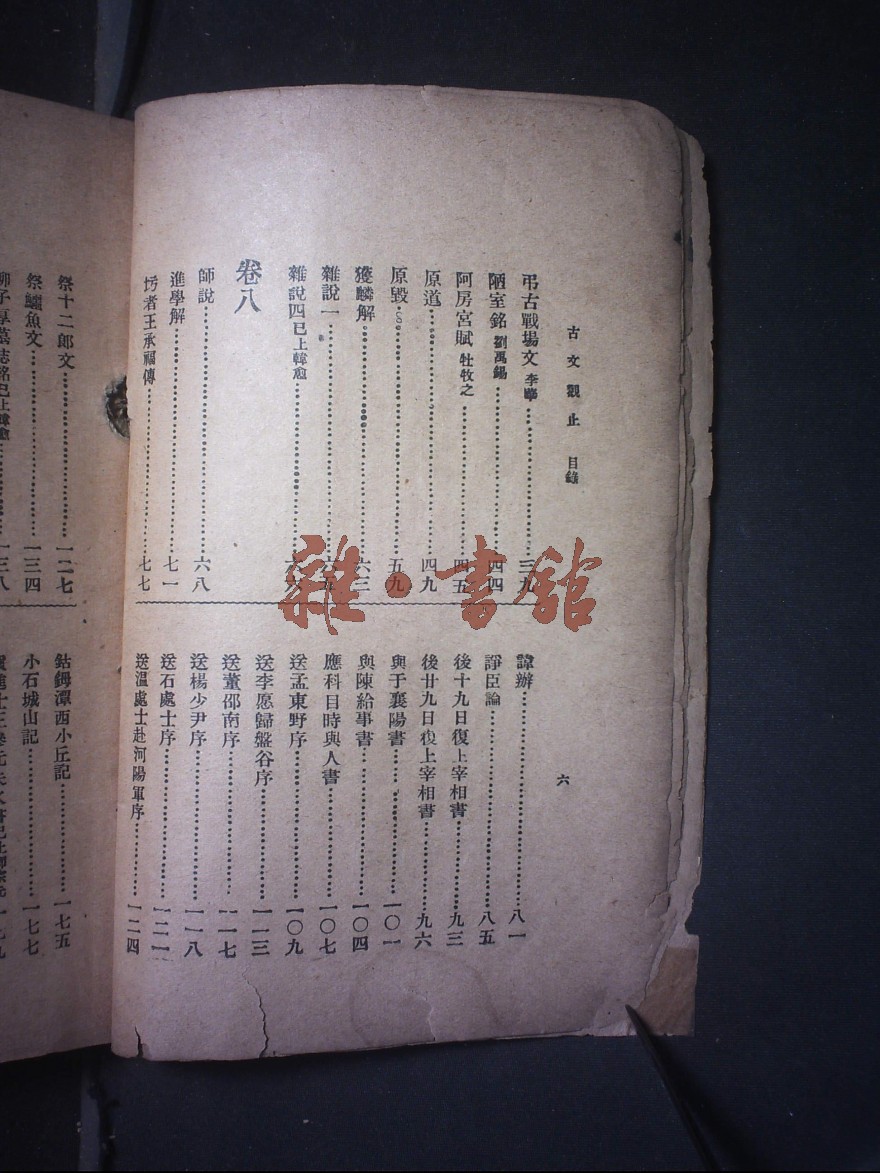 古文觀止 目錄
六
弔古戰場文 李華 三九
陋室銘 劉禹錫 四四
阿房宮賦 杜牧之 四五
原道 四九
原毀 五九
獲麟解 六三
雜說一 六五
雜說四 已上韓愈 六六
卷八
師說 六八
進學解 七一
圬者王承福傳 七七
諱辦 八一
諍臣論 八五
後十九日復上宰相書 九三
後廿九日復上宰相書 九六
與于襄陽書 一〇一
與陳給事書 一〇四
應科目時與人書 一〇七
送孟東野序 一〇九
送李愿歸盤谷序 一一三
送董邵南序 一一七
送楊少尹序 一一八
送石處士序 一二一
送溫處士赴河陽軍序 一二四
祭十二郎文 一二七
祭鱷魚文 一三四
柳子厚墓誌銘 已上韓愈 一三八
鈷鉧潭西小丘記 一七五
小石城山記 一七七
雜·書館